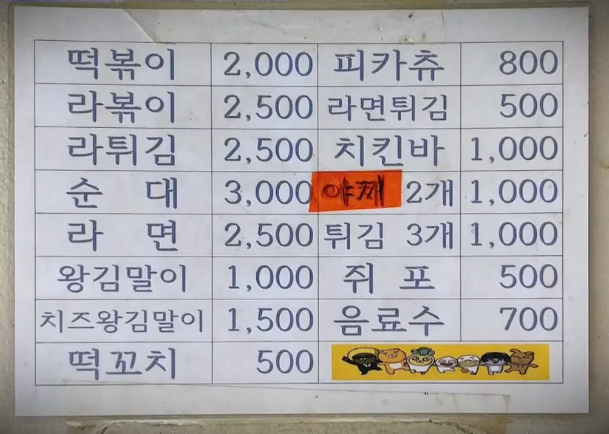 떡볶이 2,000 피카츄 800
라볶이 2,500 라면튀김 500
라튀김 2,500 치킨바 1,000
순 대 3,000 야끼 2개 1,000
라 면 2,500 튀김 3개 1,000
왕김말이 1,000 쥐 포 500
치즈왕김말이 1,500 음료수 700
떡꼬치 500